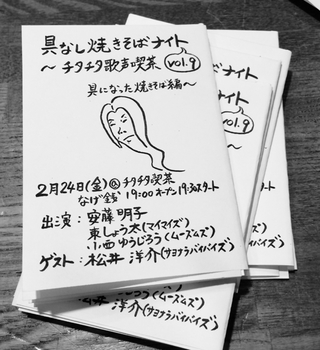 具なし焼きそばナイト
～チタチタ歌声喫茶 vol.9
具になった焼きそば編～
2月24日(金)@チタチタ喫茶
なげ銭 19:00オープン 19:30スタート
出演：安藤明子
東しょう太(マイマイズ)
小西ゆうじろう(ムーズムズ)
ゲスト：松井洋介(サヨナラバイバイズ)
ナイト
喫茶
vol.9
編～
喫茶
19:30スタート
(マイマイズ)
(ムーズムズ)
洋介(サヨナラバイバイズ)